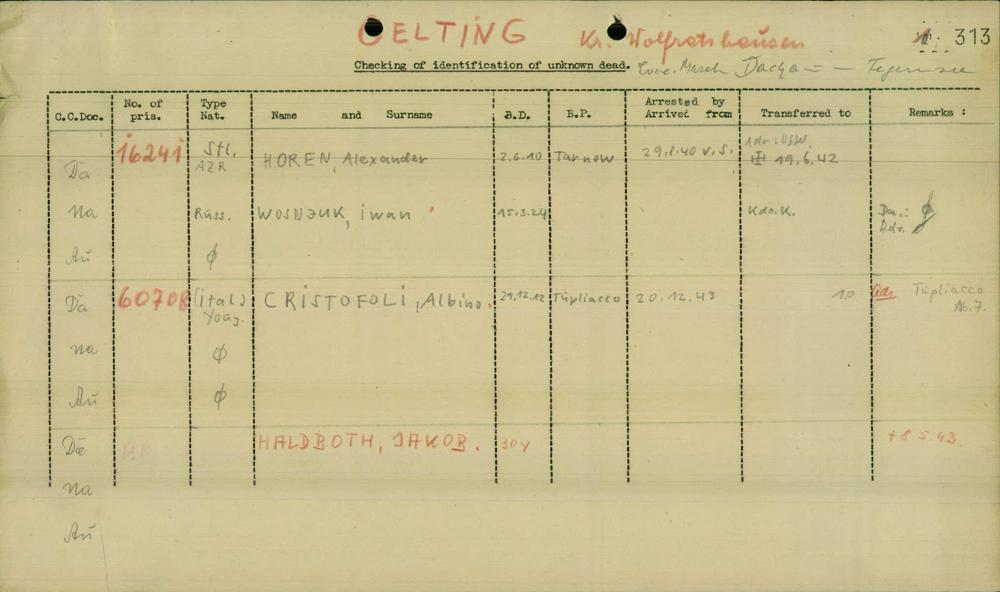 OELTING Kr. Wolfratshausen 313
Checking of identification of unknown dead. Evac. Marsch Dachau — Tegernsee
C.C.Doc. No. of pris. Type Nat. Name and Surname B.D. B.P. Arrested by Arrived from Transferred to Remarks :
Da 16241 Stl. AZR HOREN, Alexander 2.6.10 Tarnow 29.8.40 v.S. 19.6.42
Na Russ. WOSNJUK, iwan 15.3.24 Kdo.K. Da.: Ø Adr.
Au Ø
Da 60708 (ital) Youg. CRISTOFOLI, Albino. 29.12.12 Tüpliacco 20.12.43 10 Adr. Tüpliacco No.7.
Na Ø
Au Ø
Da HALDBOTH, JAKOB. 30y +8 5 43.
Na
Au